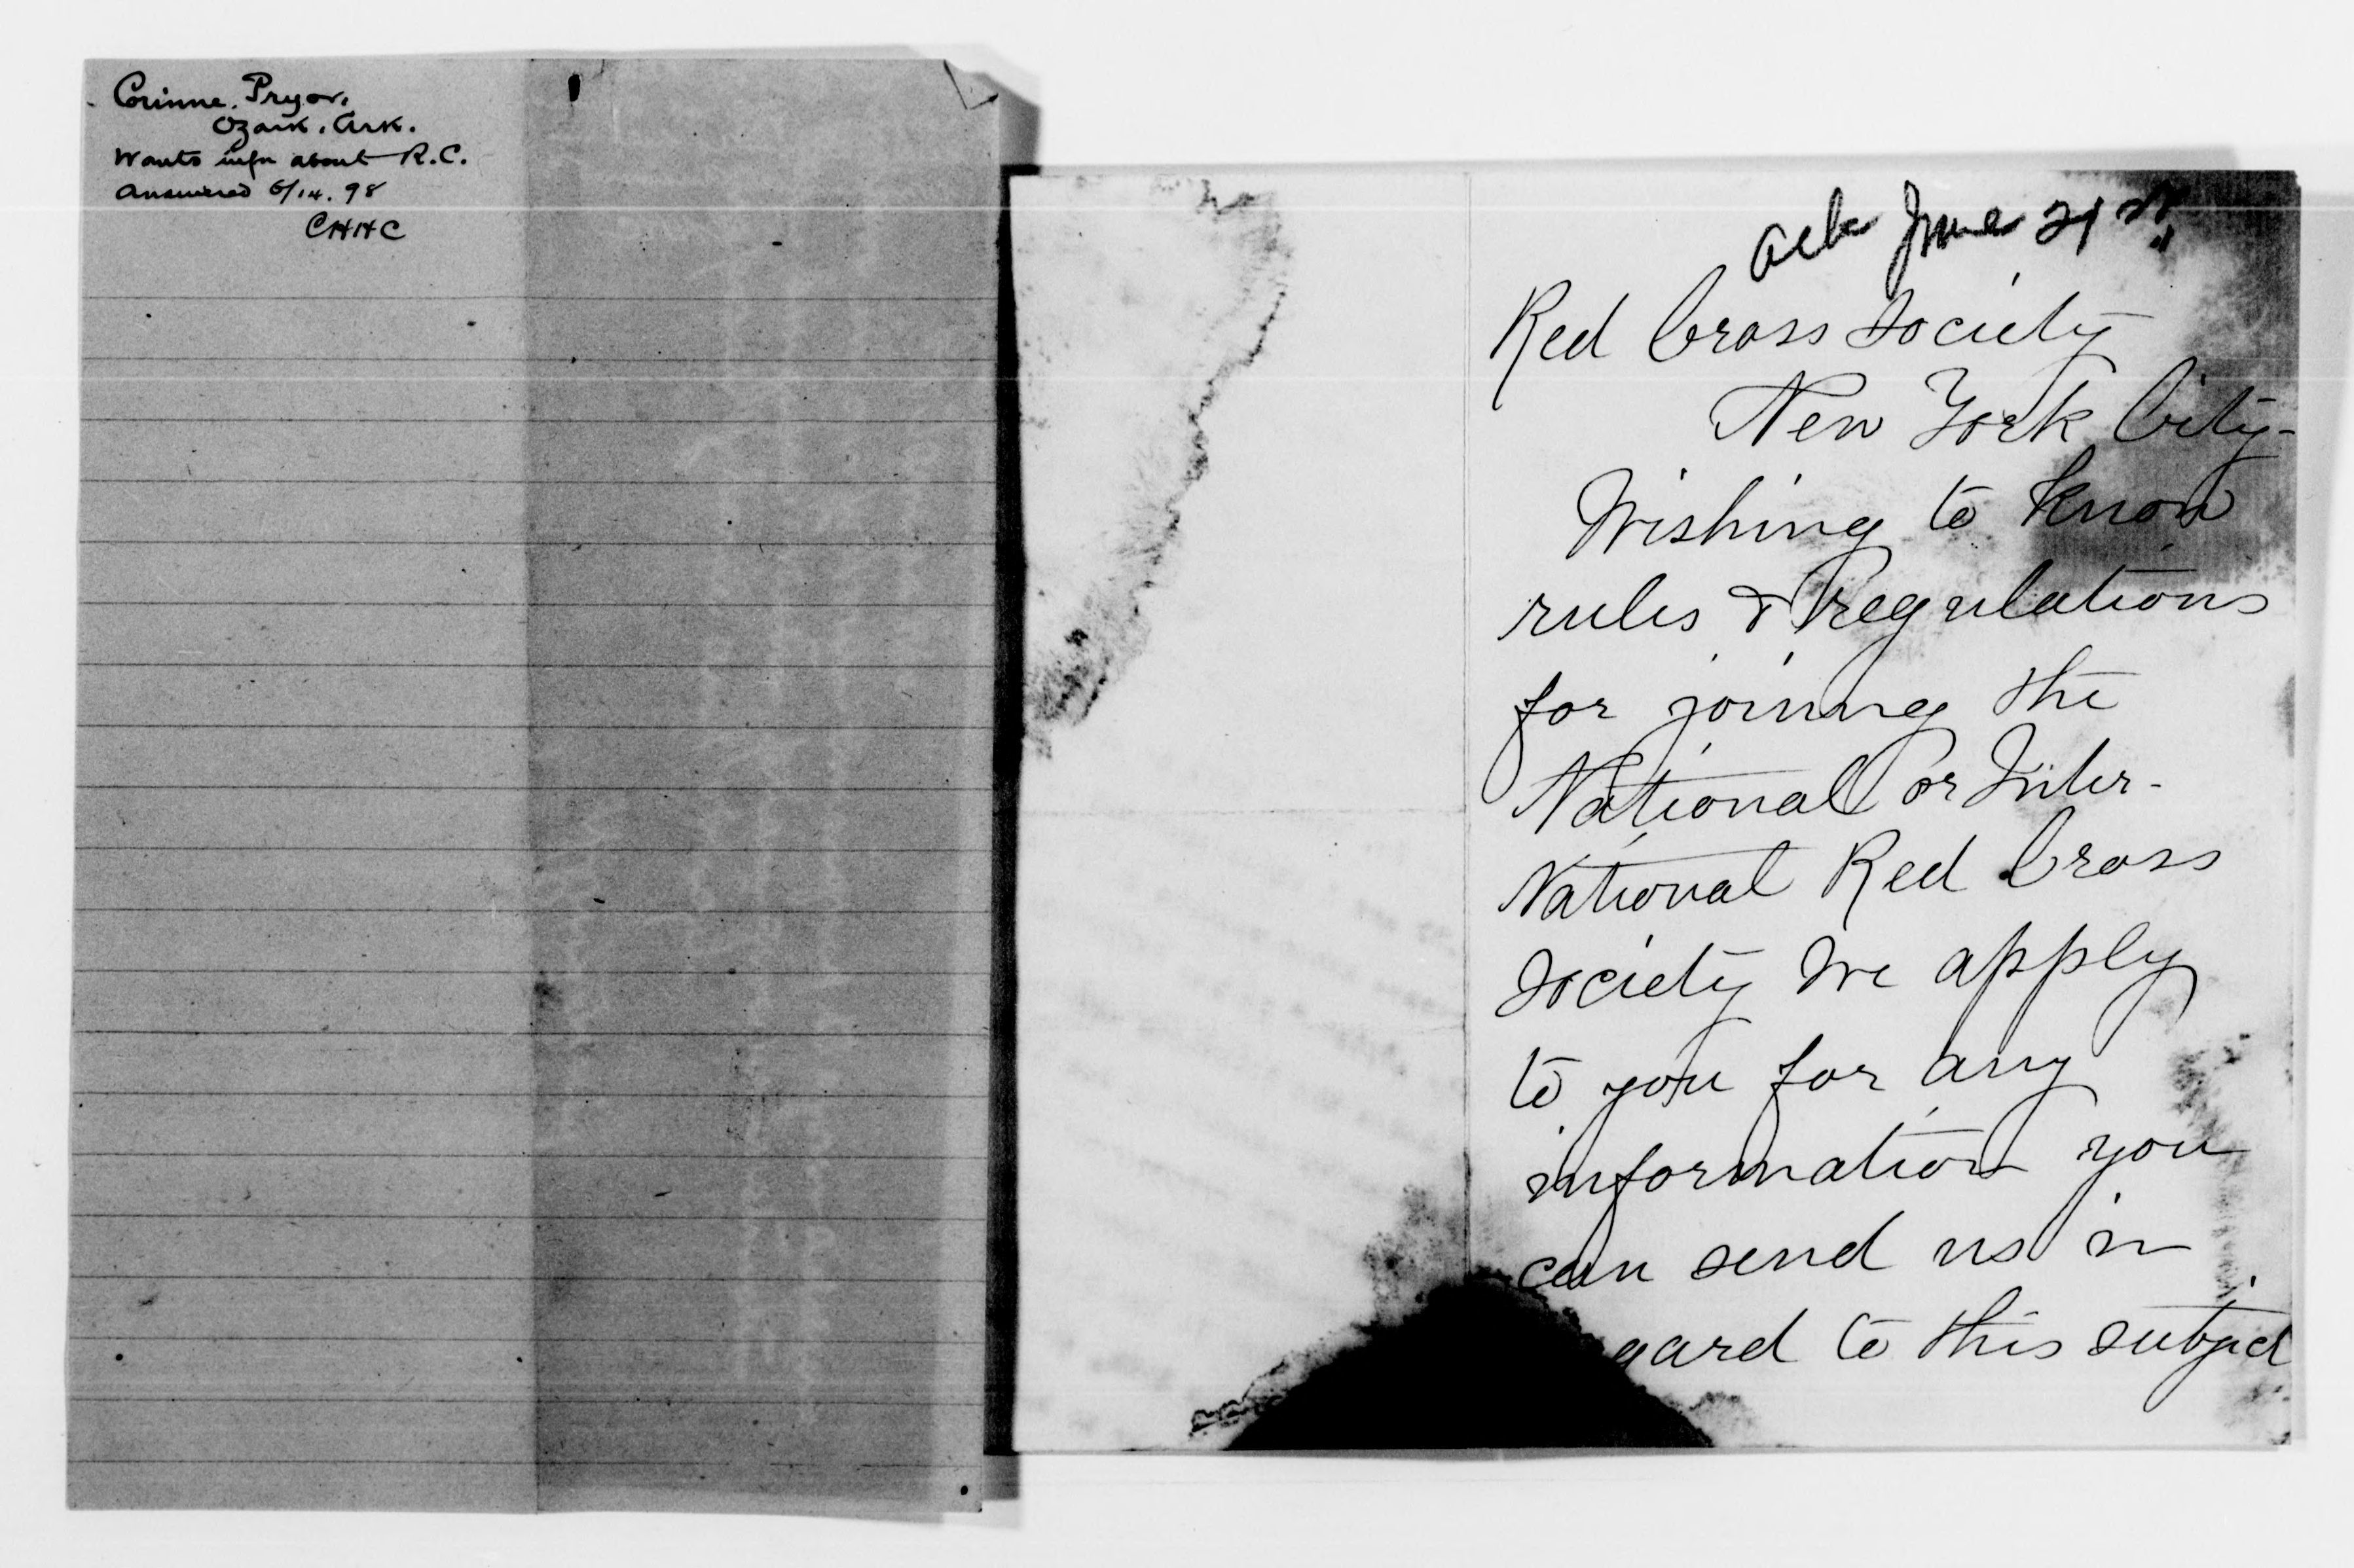 Corinne. Pryor.
Ozark. Ark.
Wants infn about R.C.
Answered 6/14.98
CHHC
Ack June 21st
Red Cross Society
New York City-
Wishing to know
rules & regulations
for joining the
National or Inter-
National Red Cross
Society We apply
to you for any
information you
can send us in
gard to this subject